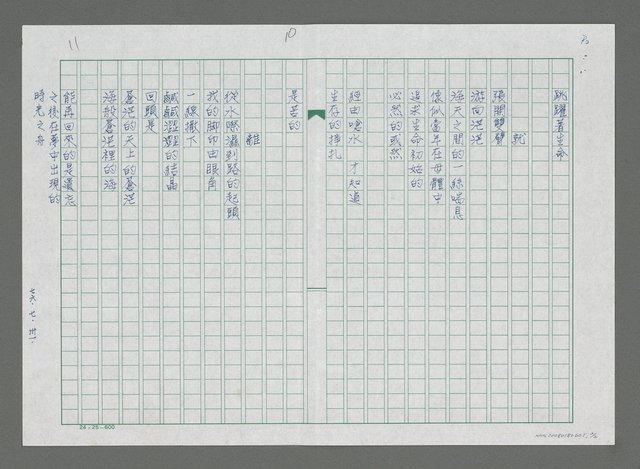 跳躍著生命
就
張開雙臂
游向茫茫
海天之間的一絲喘息
像似當年在母體中
追求生命初始的
必然的或然
經由嗆水 才知道
生存的掙扎
是苦的
離
從水際濕到路的起頭
我的腳印由眼角
一線撒下
鹹鹹澀澀的結晶
回頭是
蒼茫的天上的蒼茫
海般蒼茫裡的海
能再回來的是遺忘
之後在夢中出現的
時光之舟
七六．七．卅一．
10
11
24×25=600